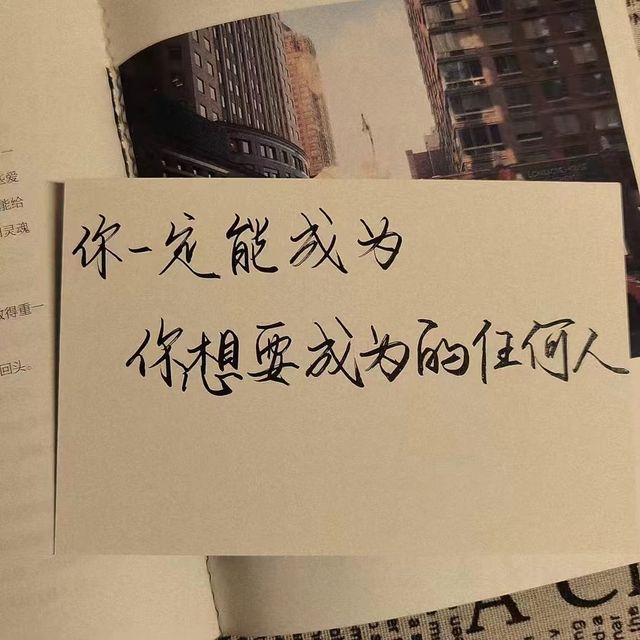 你一定能成为
你想要成为的任何人
一
些爱
能给
灵魂
得重一
回头。
A C